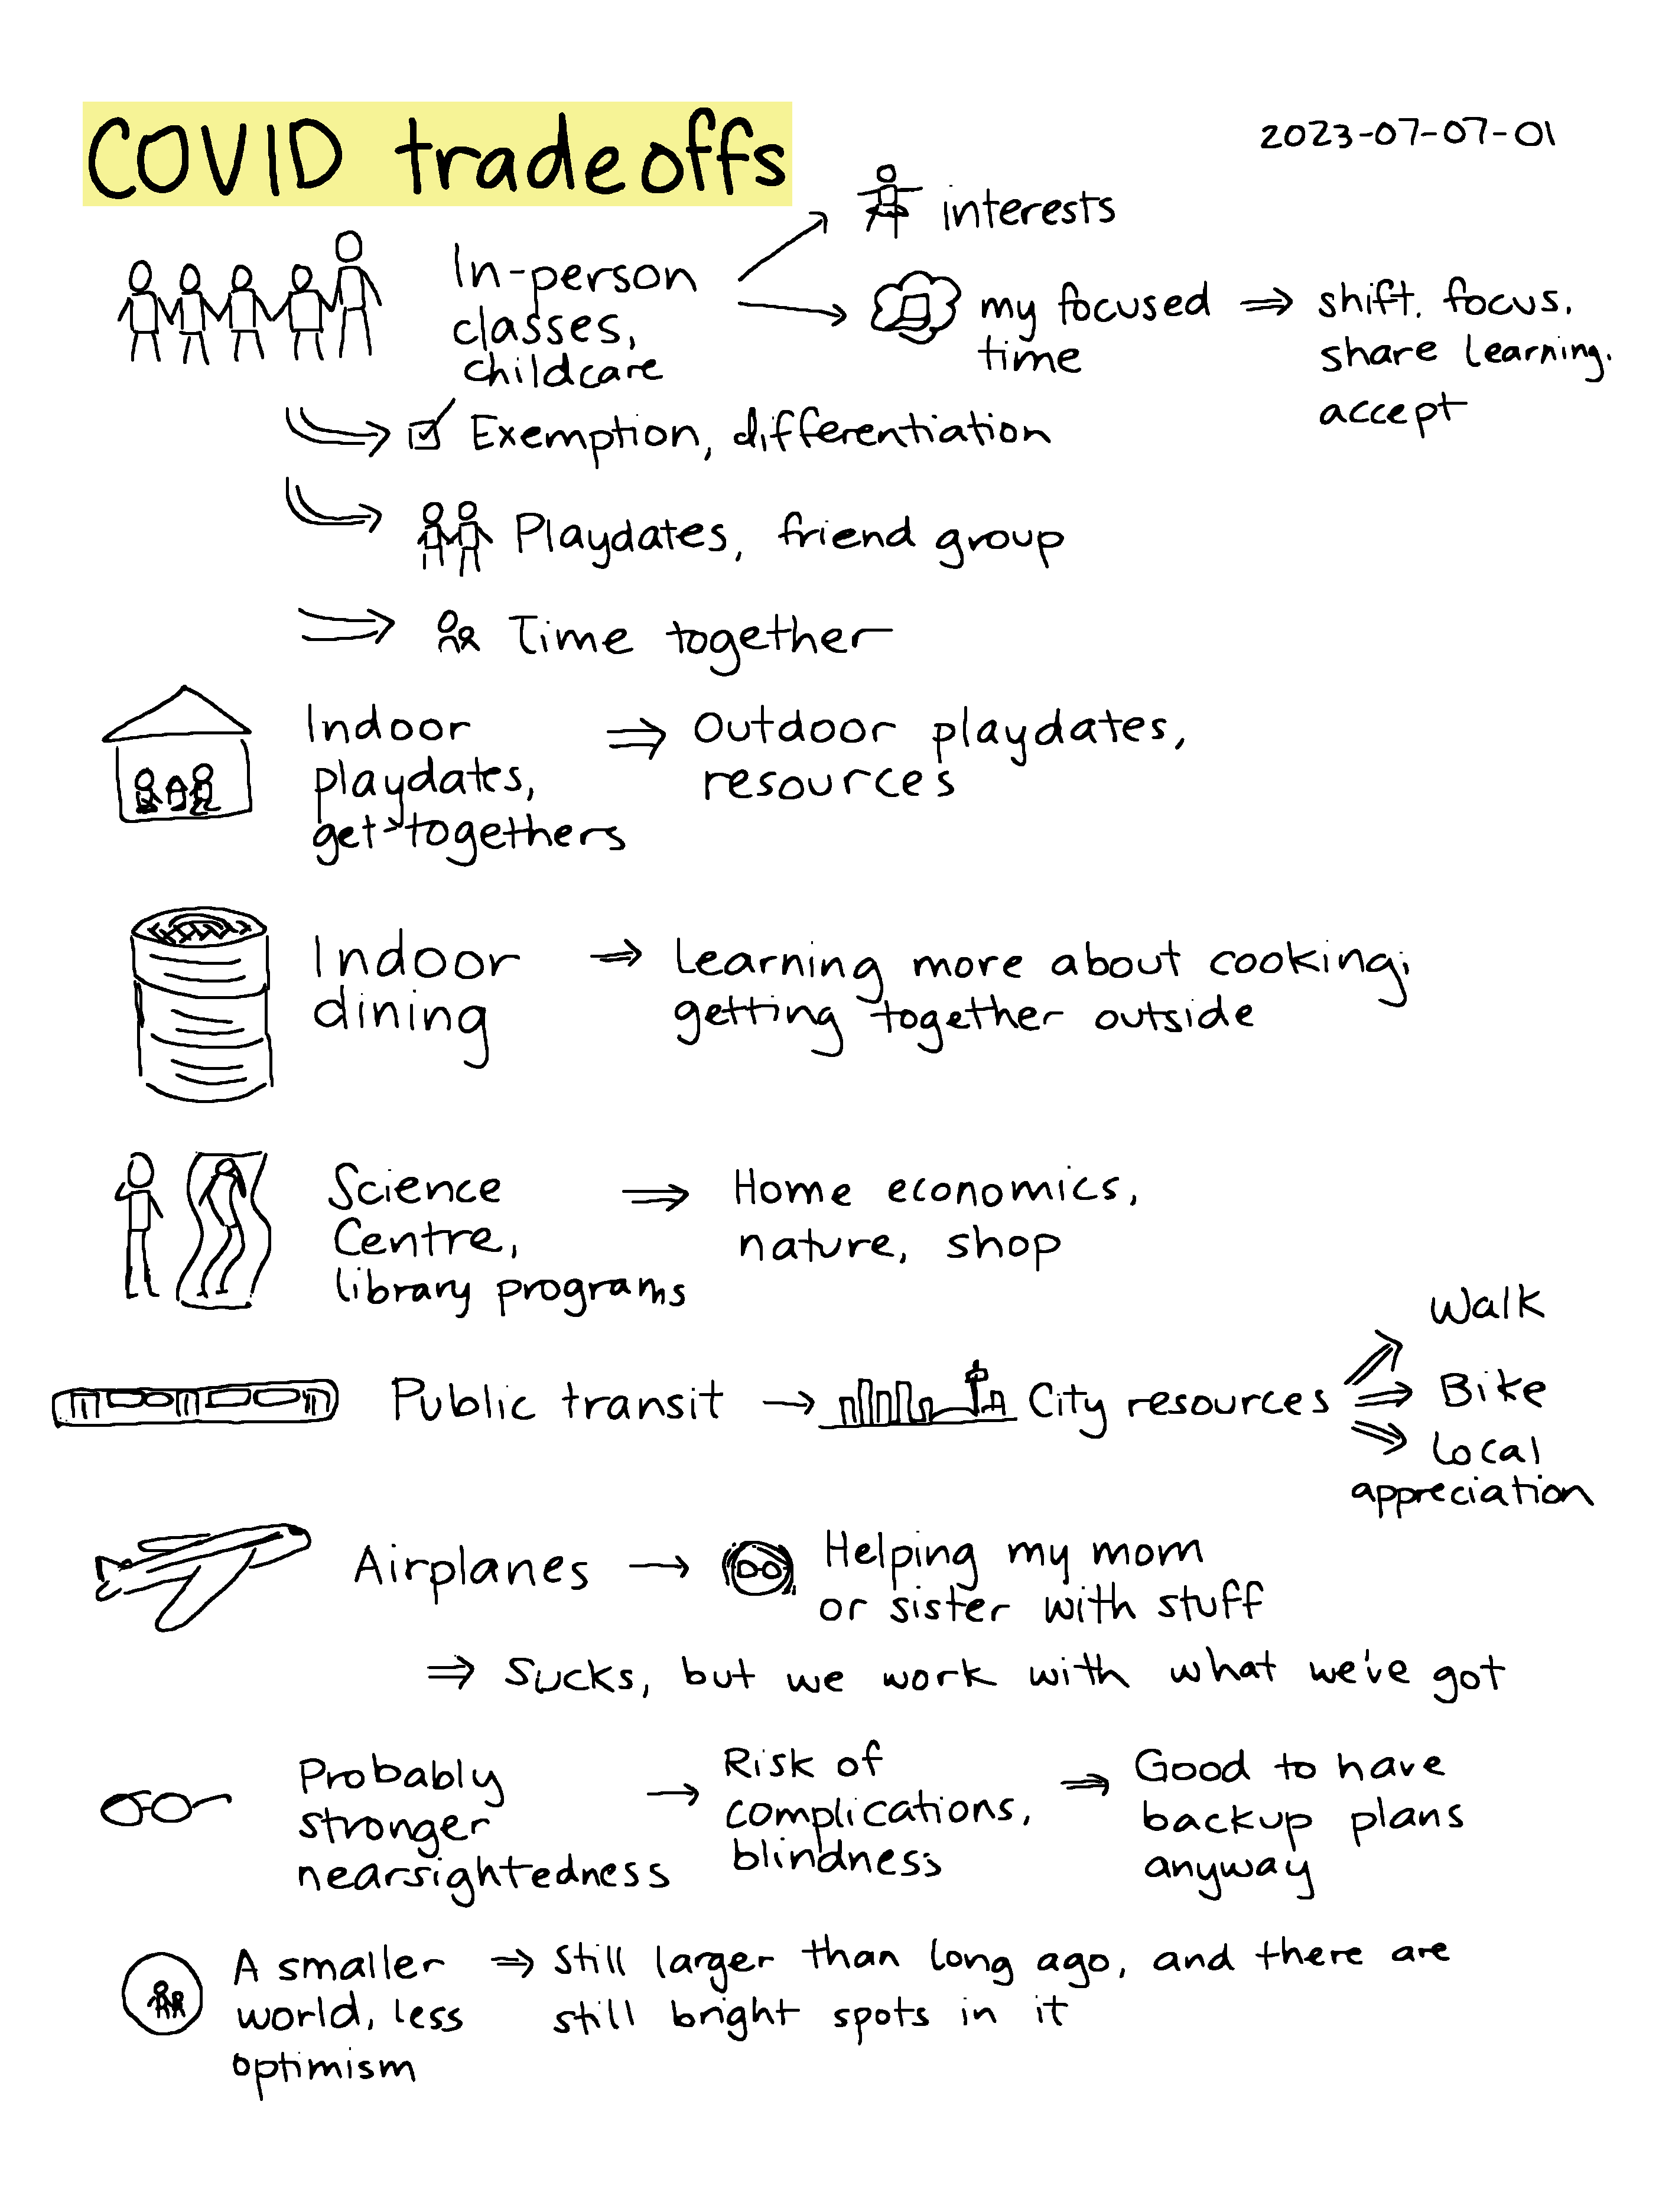 COVID tradeoffs
2023-07-07-01
In-person
classes,
childcare
interests
my focused
time
shift. focus.
share learning.
accept
Exemption, differentiation
Playdates, friend group
Time together
Indoor
playdates,
get-togethers
Outdoor playdates,
resources
Indoor
dining
Learning more about cooking;
getting together outside
Science
Centre,
library programs
Home economics,
nature, shop
Public transit
City resources
Walk
Bike
Local
appreciation
Airplanes
Helping my mom
or sister with stuff
Sucks, but we work with what we've got
Probably
stronger
nearsightedness
Risk of
complications,
blindness
Good to have
backup plans
anyway
A smaller
world, less
optimism
Still larger than long ago, and there are
still bright spots in it